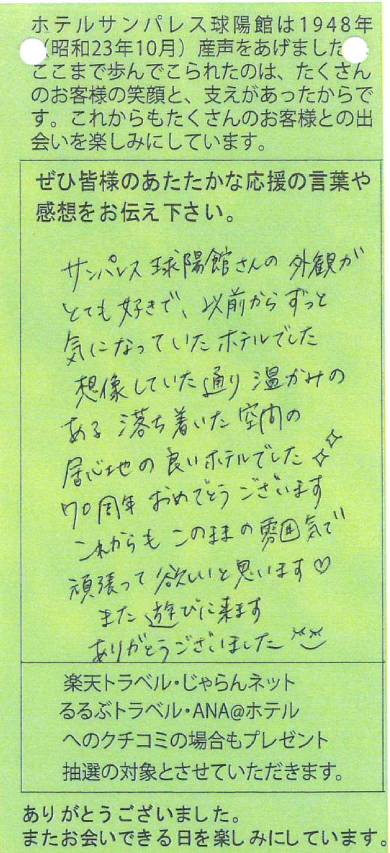 ホテルサンパレス球陽館は1948年
(昭和23年10月)産声をあげました
ここまで歩んでこられたのは、たくさん
のお客様の笑顔と、支えがあったからで
す。これからもたくさんのお客様との出
会いを楽しみにしています。
ぜひ皆様のあたたかな応援の言葉や
感想をお伝え下さい。
サンパレス球陽館さんの外観が
とても好きで、以前からずっと
気になっていたホテルでした
想像していた通り温かみの
ある落ち着いた空間の
居心地の良いホテルでした
70周年おめでとうございます
これからもこのままの雰囲気で
頑張って欲しいと思います♡
また遊びに来ます
ありがとうございました
楽天トラベル・じゃらんネット
るるぶトラベル・ANA@ホテル
へのクチコミの場合もプレゼント
抽選の対象とさせていただきます。
ありがとうございました。
またお会いできる日を楽しみにしています。